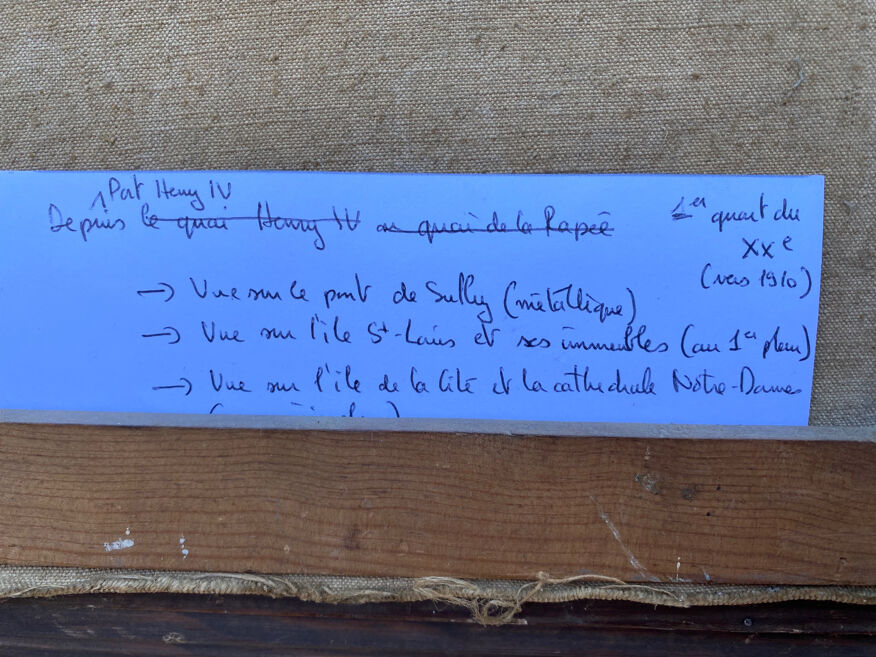 Port Henry IV
Depuis le quai Henry IV ou quai de la Rapée
1er quart du
XXe
(vers 1910)
→ Vue sur le pont de Sully (métallique)
→ Vue sur l'île St-Louis et ses immeubles (au 1er plan)
→ Vue sur l'île de la Cité et la cathédrale Notre-Dames